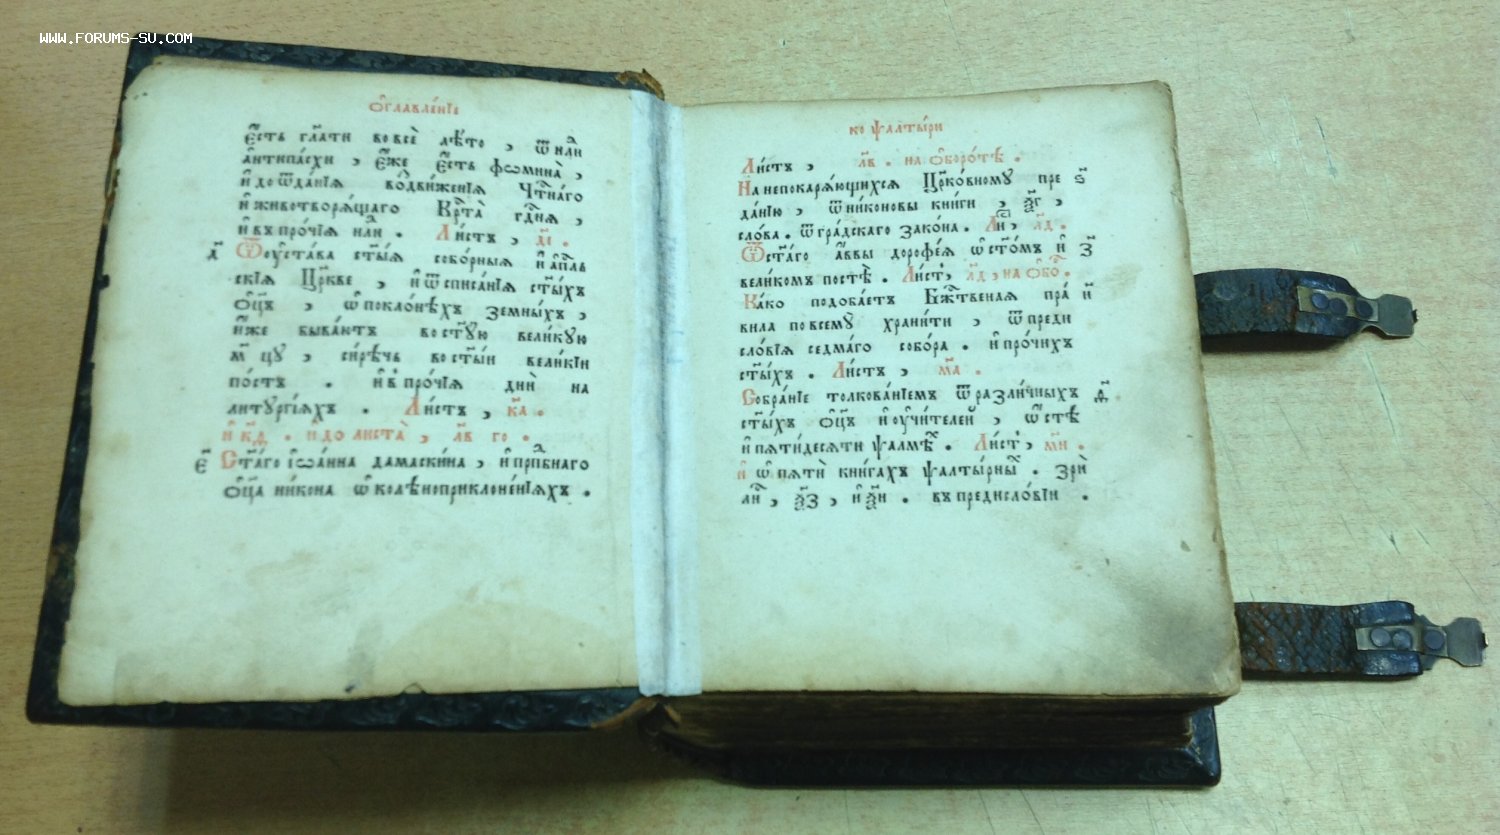 WWW.FORUMS-SU.COM
ѻ҆главле́нїе
є҆́сть гл҃ати во всѐ лѣ́то , ѿ нлѧ
а҆нтипа́схи , є҆́же є҆́сть фомина̀ ,
и҆ до ѿда́нїѧ воздви́женїѧ чⷭ҇тна́гѡ
и҆ животворѧ́щаго крⷭ҇та̀ гдⷭ҇нѧ ,
и҆ въ про́чїѧ нлѧ . Ли́стъ , д҃і .
д҃ Ѿ оу҆ста́ва ст҃ы́ѧ собо́рныѧ и҆ а҆пⷭ҇ль
скїѧ цр҃кве , и҆ ѿ списа́нїѧ ст҃ы́хъ
ѻ҆ц҃ъ , ѡ҆ покло́нѣхъ земны́хъ ,
и҆́же быва́ютъ во ст҃у́ю вели́кую
м҃цу , си́рѣчь во ст҃ы́и вели́кїи
по́стъ . и҆ в про́чїѧ днѝ на
литургі́ѧхъ . Ли́стъ , к҃а .
и҆ к҃д . и до листа̀ , л҃в го .
є҃ Ст҃а́го і҆ѡа́нна дамаски́на , и҆ прпⷣбнаго
ѻ҆ц҃а ни́кона ѡ҆ колѣноприклоне́нїѧхъ .
ко ѱалты́ри
Ли́стъ , л҃в . на ѻ҆боро́тѣ .
На непокарѧ́ющихсѧ цр҃ко́вному пре ѕ҃
да́нїю , ѿ ни́коновы кни́ги , к҃г ,
сло́ва . ѿ гра́дскаго зако́на . Ли , л҃д .
Ѿ ст҃а́го а҆́ввы дороѳе́ѧ ѡ҆ ст҃о́мъ и҆ з҃
вели́комъ постѣ̀ . Ли́ст , л҃д , на ѻ҆бо .
Ка́ко подоба́етъ бж҃твеная пра́ и҃
вила по всему̀ храни́ти , ѿ преди
сло́вїѧ седма́го собо́ра . и҆ про́чихъ
ст҃ы́хъ . Ли́стъ , м҃а .
Собра́нїе толкова́нїемъ ѿ разли́чныхъ д҃
ст҃ы́хъ ѻ҆ц҃ъ и҆ оу҆чи́телей , ѡ҆ стѣ
и҆ пѧти́десѧти ѱалмѣ . Ли́ст , м҃и .
и҆ ѡ҆ пѧтѝ кни́гахъ ѱалты́рны . зрѝ
ли , з҃ , и҆ и҃ . въ предисло́вїи .